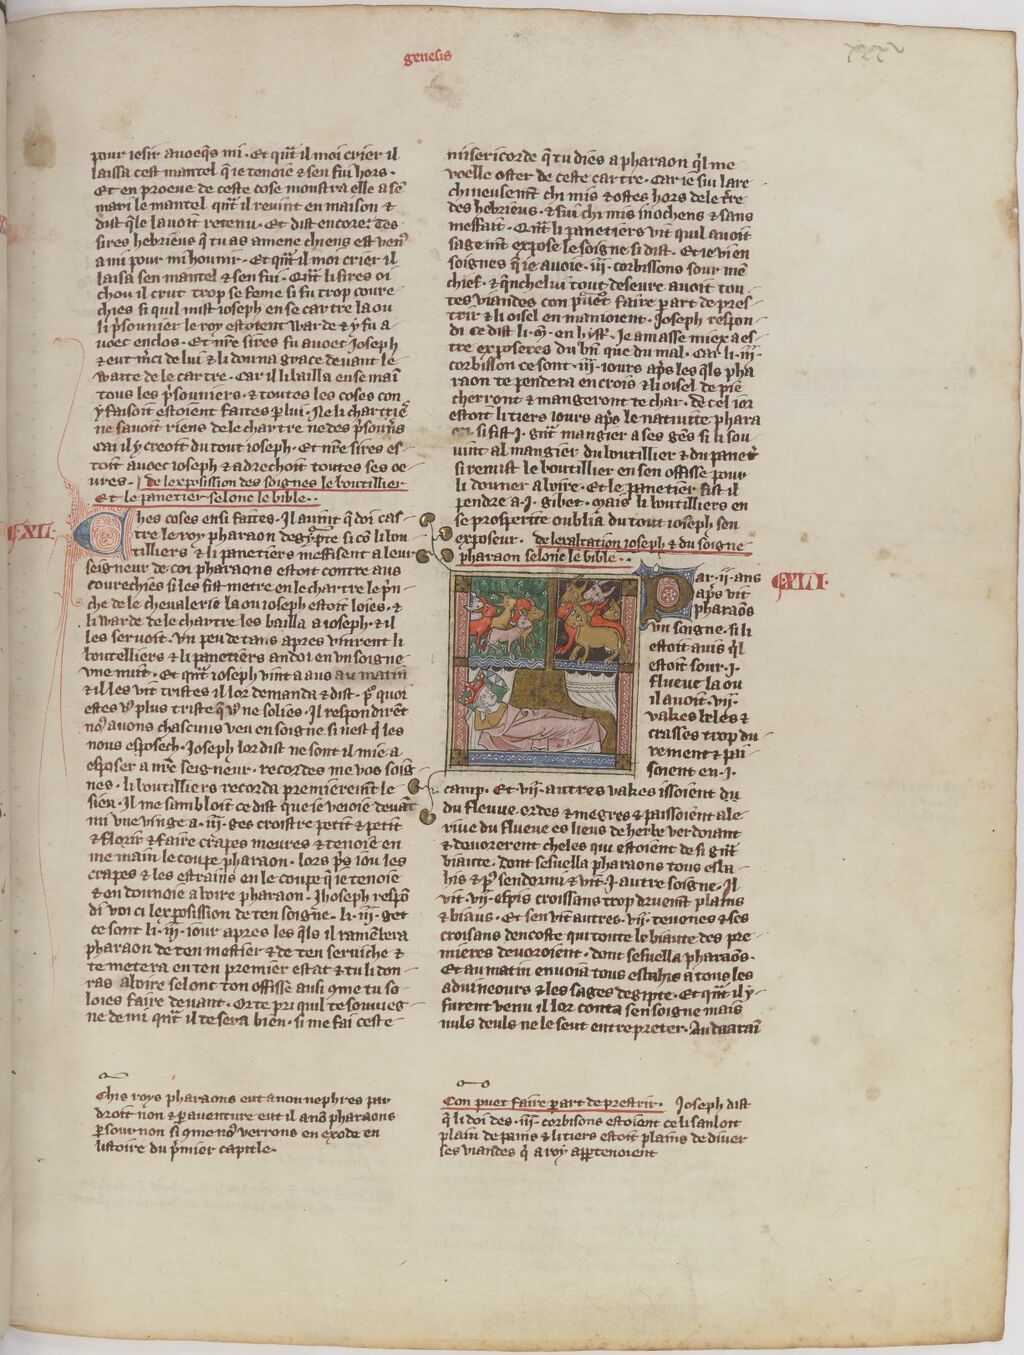 genesis
pour iesir avoeqs mi. Et qnt il moi crier il
laissa cest mantel q ie tenoie & sen fui hors.
Et en proeve de ceste cose monstra elle a se
mari le mantel qnt il revint en maison &
dist qle lavoit retenu. Et dist encore. Tes
sires hebrieus q tu as amene chiens est ven
a mi pour mi hounir. Et qnt il moi crier il
laisa sen mantel & sen fui. Qnt li sires oi
chou il crut trop se feme si fu trop coure
chies si quil mist ioseph en se cartre la ou
li psounier le roy estoient warde & y fu a
voec enclos. Et nre sires fu avoec Joseph
& eut mci de lui & li douna grace devant le
warte de le cartre. Car il li bailla en se mai
tous les psouniers. & toutes les coses con
y faisoit estoient faites p lui. Ne li chartre
ne savoit riens de le chartre ne des psouns
Cai il y creoit du tout ioseph. Et nre sires es
toit avoec ioseph & adrechoit toutes ses oe
vres. de lexposission des soignes le boutillier
Et le panetier selonc le bible.
XL.
Ches coses ensi faites. Il avint q doi cas
tre le roy pharaon degypte si co li bou
tilliers & li panetiers meffisent a leur
seigneur de coi pharaons estoit contre aus
courechies si les fist metre en le chartre le pn
che de le chevalerie la ou ioseph estoit loies. &
li warde de le chartre les bailla a ioseph. & il
les servoit. Un peu de tans apres vinrent li
boutelliers & li panetiers andoi en un soigne
une nuit. Et qnt ioseph vint a aus au matin
& il les vit tristes il lor demanda & dist. p quoi
estes v plus triste q v ne solies. Il respondiret
no avons chascuns veu en soigne si nest q les
nous espesech. Joseph lor dist ne sont il mie a
esposer a nre seigneur. recordes me vos soig
nes. li boutilliers recorda premiereint le
sien. Il me sambloit ce dist que ie veioie devat
mi une vinge a .iii. ges croistre petit & petit
& florir & faire crapes meures & tenoie en
me main le coupe pharaon. lors ps iou les
crapes & les estrains en le coupe q ie tenoie
& en dounoie a boire pharaon. Jhoseph respo
di voi ci lexposission de ten soigne. li .iii. get
ce sont li .iii. iour apres les qls il ramebera
pharaon de ton mestier & de ten serviche &
te metera en ten premier estat & tu li don
ras a boire selonc ton offisse ausi qme tu so
loies faire devant. Or te pri quil te souvieg
ne de mi qnt il te sera bien. si me fai ceste
misericorde q tu dies a pharaon ql me
voelle oster de ceste cartre. Car ie sui lare
chineusemt chi mis & ostes hors de le tre
des hebrieus. & sui chi mis inochens & sans
meffait. Qnt li panetiers vit quil avoit
sagemt expose le soigne si dist. Et ie vi en
soignes q ie avoie .iii. corbissons sour me
chief. & qnchelui tout deseure avoit tou
tes viandes con puet faire part de pres
trir & li oisel en manioient. Joseph respon
di ce dist li .m. en hyst. Je amasse miex a es
tre exposeres du bn que du mal. Car li .iii.
corbisson ce sont .iii. iours aps les qls pha
raon te pendera en crois & li oisel depie
cherront & mangeront te char. de cel ior
estoit li tiers iours aps le nativite phara
on. si fist .i. gnt mangier a ses ges si li sou
vint al mangier du boutillier & du panet
si remist le boutillier en sen offisse pour
li douner a boire. Et le panetier fist il
pendre a .i. gibet. Mais li boutilliers en
se prosperite oublia du tout ioseph sen
exposeur. de lexaltation ioseph & du soigne
pharaon selonc le bible.
XLI.
Par .ii. ans
aps vit
pharaos
un soigne. si li
estoit avis ql
estoit sour .i.
flueve la ou
il avoit .vii.
vakes beles &
crasses trop du
rement & pai
soient en .i.
camp. Et .vii. autres vakes issoient du
du flueve. ordes & megres & paissoient a le
rive du flueve es lieus de herbe verdoiant
& devorerent cheles qui estoient de si gnt
biaute. dont sesveilla pharaons tous esba
his & p sendormi & vit .i. autre soigne. Il
vit .vii. espis croissans trop druemt plains
& biaus. Et sen vit autres .vii. tenenes & ses
croisans dencoste qui toute le biaute des pre
mieres devoroient. dont sesvella pharaos.
Et au matin envoia tous esbahis a tous les
advineours & les sages degipte. Et qnt il y
furent venu il lor conta sen soigne mais
nuls deuls ne le seut entrepreter.
Chis roys pharaons eut a non nephres par
droit non & p aventure eut il a no pharaons
p sournon si qme no verrons en exode en
listoire du pmier capitle.
Con puet faire part de prestrir. Joseph dist
q li doi des .iii. corbisons estoient ce li sanloit
plain de pains & li tiers estoit plains de diver
ses viandes q a roy apptenoient